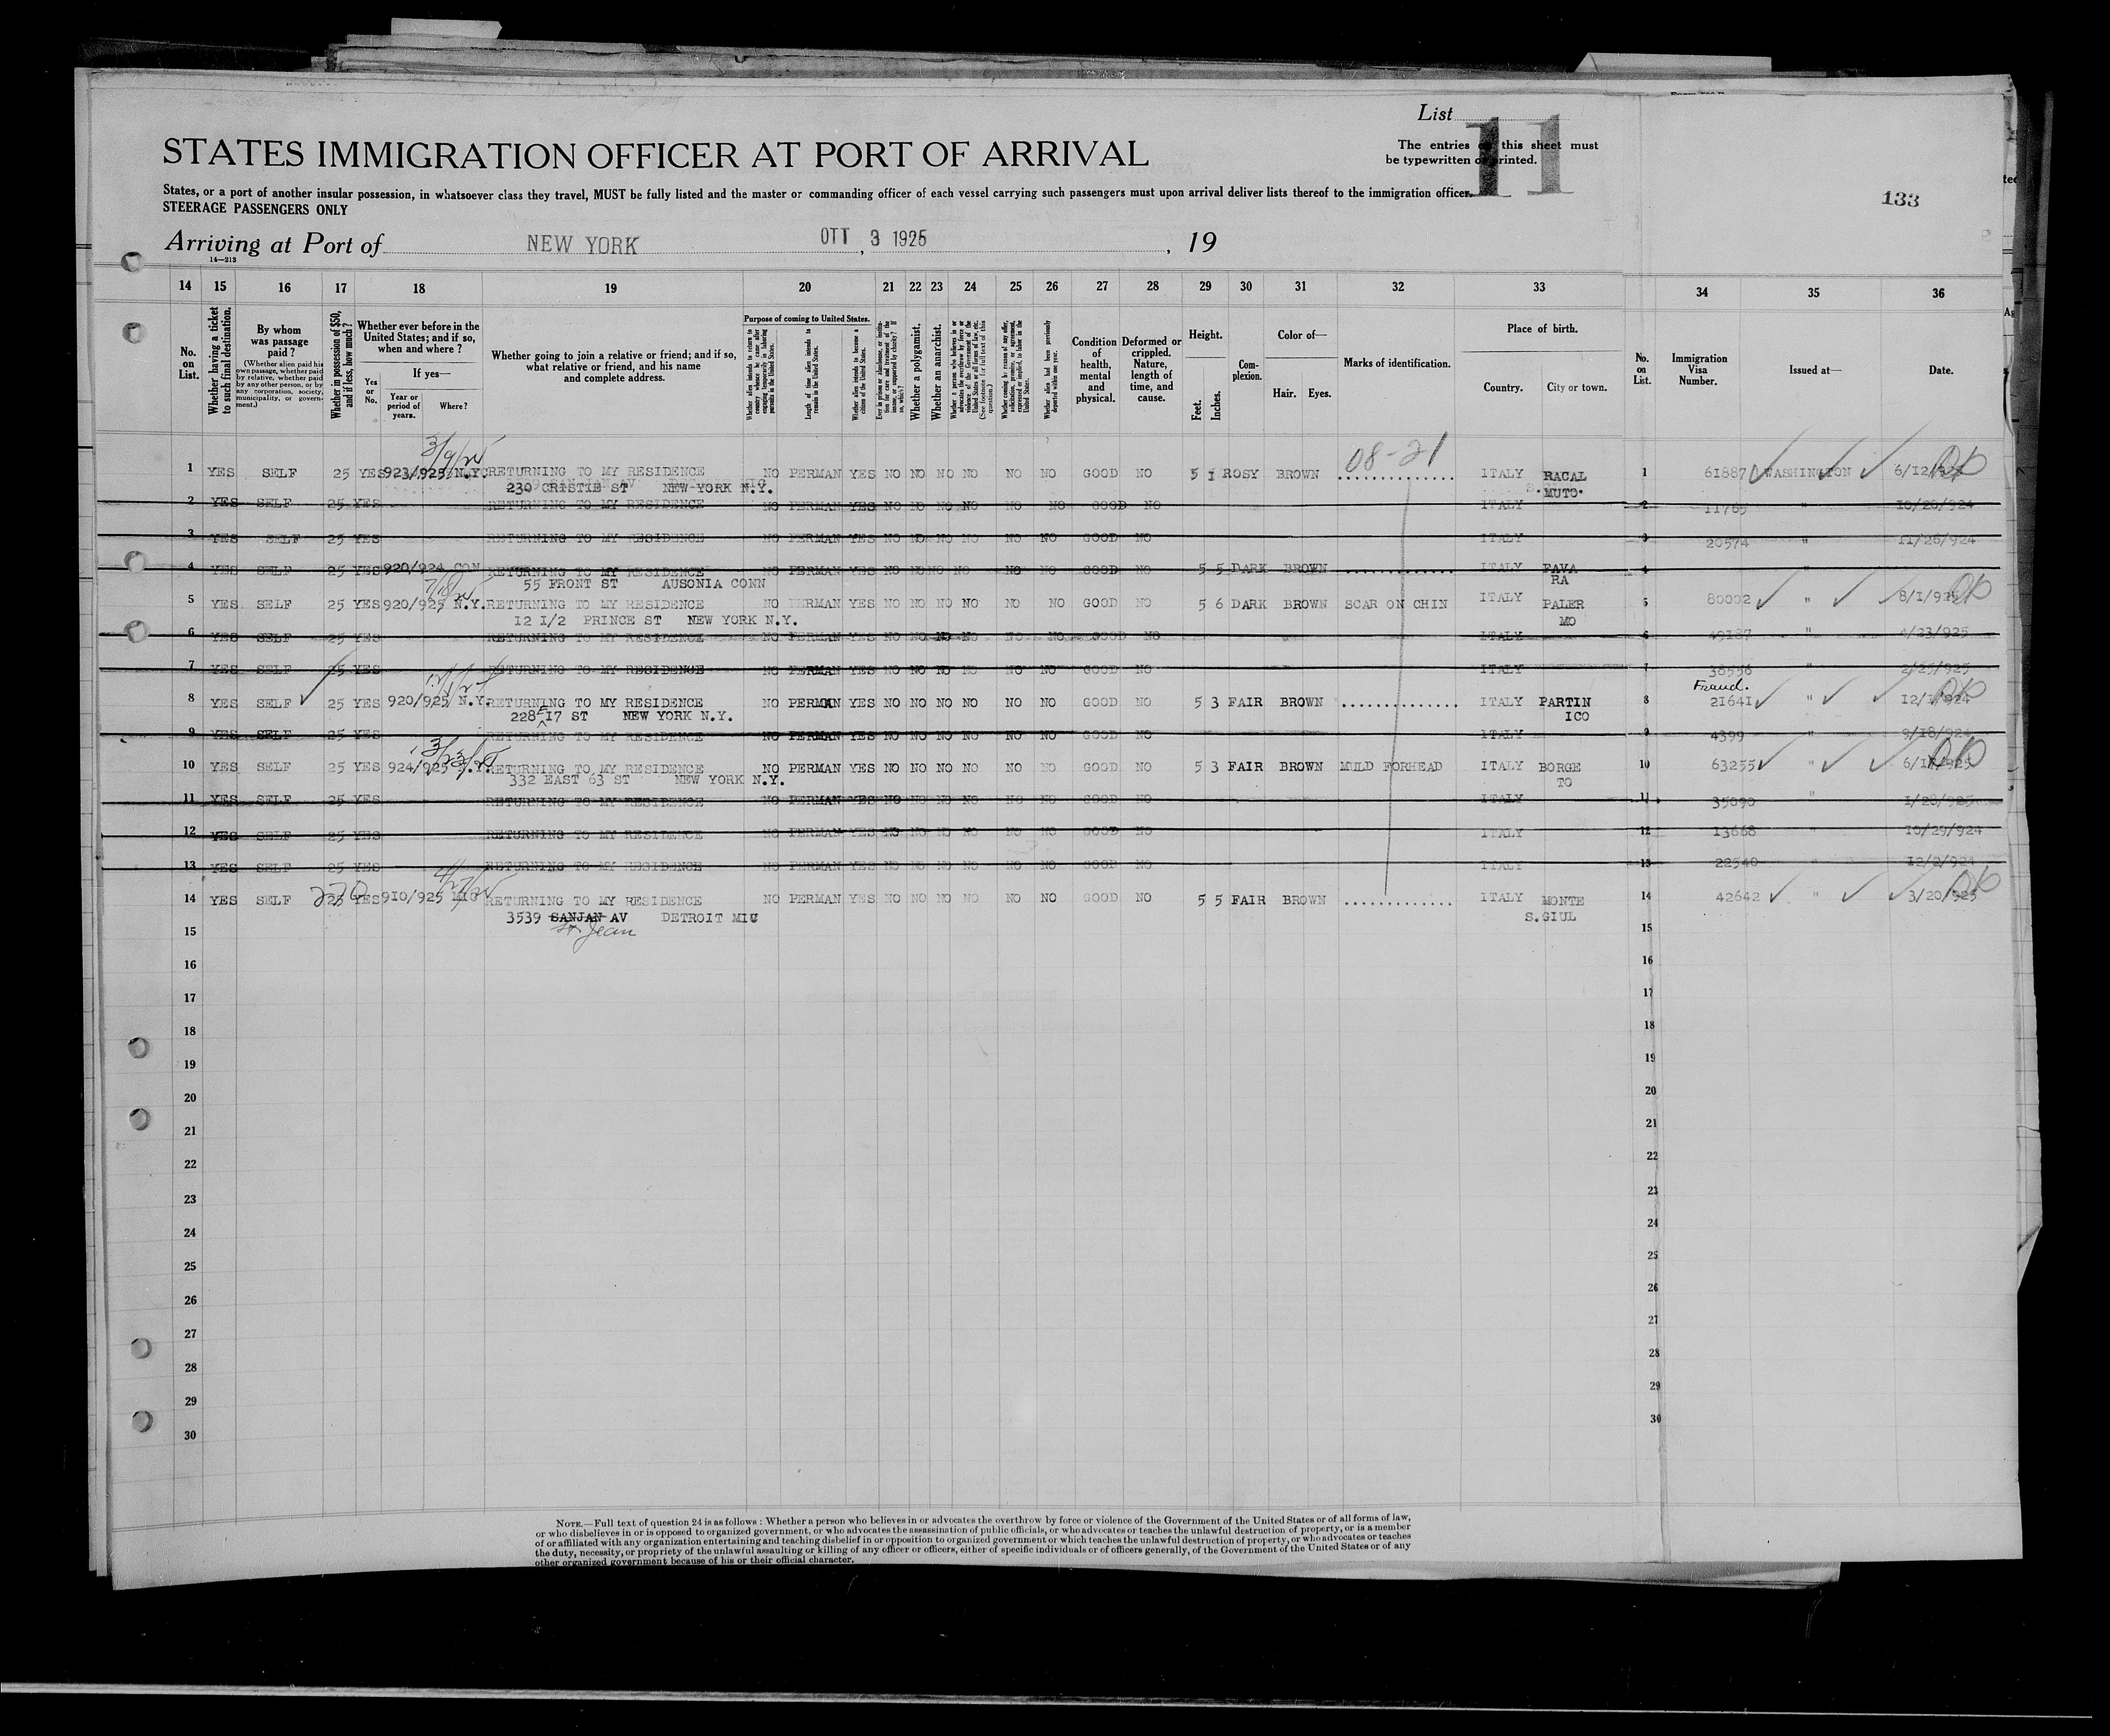 List 11
The entries on this sheet must
be typewritten or printed.
STATES IMMIGRATION OFFICER AT PORT OF ARRIVAL
133
States, or a port of another insular possession, in whatsoever class they travel, MUST be fully listed and the master or commanding officer of each vessel carrying such passengers must upon arrival deliver lists thereof to the immigration officer.
STEERAGE PASSENGERS ONLY
Arriving at Port of NEW YORK, OTT 3 1925, 19
14—213
14 15 16 17 18 19 20 21 22 23 24 25 26 27 28 29 30 31 32 33 34 35 36
No. on List.
Whether having a ticket to such final destination.
By whom was passage paid?
(Whether alien paid his own passage, whether paid by relative, whether paid by any other person, or by any corporation, society, municipality, or government.)
Whether in possession of $50, and if less, how much?
Whether ever before in the United States; and if so, when and where?
Yes or No.
If yes—
Year or period of years.
Where?
Whether going to join a relative or friend; and if so, what relative or friend, and his name and complete address.
Purpose of coming to United States.
Whether alien intends to return to country whence he came after engaging temporarily in laboring pursuits in the United States.
Length of time alien intends to remain in the United States.
Whether alien intends to become a citizen of the United States.
Whether a polygamist.
Whether an anarchist.
Condition of health, mental and physical.
Deformed or crippled. Nature, length of time, and cause.
Height.
Feet. Inches.
Complexion.
Color of—
Hair. Eyes.
Marks of identification.
Place of birth.
Country. City or town.
No. on List.
Immigration Visa Number.
Issued at—
Date.
3/9/25 08-21
1 YES SELF 25 YES 923/925 N.Y. RETURNING TO MY RESIDENCE NO PERMAN YES NO NO NO NO NO NO GOOD NO 5 1 ROSY BROWN .............. ITALY RACAL 1 61887 WASHINGTON 6/12/925 OK
230 CRISTIE ST NEW-YORK N.Y. MUTO.
2 YES SELF 25 YES RETURNING TO MY RESIDENCE NO PERMAN YES NO NO NO NO NO NO GOOD NO ITALY 2 11765 " 10/20/924
3 YES SELF 25 YES RETURNING TO MY RESIDENCE NO PERMAN YES NO NO NO NO NO NO GOOD NO ITALY 3 20574 " 11/26/924
4 YES SELF 25 YES 920/924 CON RETURNING TO MY RESIDENCE NO PERMAN YES NO NO NO NO NO NO GOOD NO 5 5 DARK BROWN .............. ITALY FAVA 4 "
55 FRONT ST AUSONIA CONN RA
5 YES SELF 25 YES 920/925 N.Y. RETURNING TO MY RESIDENCE NO PERMAN YES NO NO NO NO NO NO GOOD NO 5 6 DARK BROWN SCAR ON CHIN ITALY PALER 5 80002 " 8/1/925 OK
12 1/2 PRINCE ST NEW YORK N.Y. MO
6 YES SELF 25 YES RETURNING TO MY RESIDENCE NO PERMAN YES NO NO NO NO NO NO GOOD NO ITALY 6 49187 " 4/23/925
7 YES SELF 25 YES RETURNING TO MY RESIDENCE NO PERMAN YES NO NO NO NO NO NO GOOD NO ITALY 7 38556 " 2/25/925
Fraud.
8 YES SELF 25 YES 920/925 N.Y. RETURNING TO MY RESIDENCE NO PERMAN YES NO NO NO NO NO NO GOOD NO 5 3 FAIR BROWN .............. ITALY PARTIN 8 21641 " 12/1/924 OK
228 E 17 ST NEW YORK N.Y. ICO
9 YES SELF 25 YES RETURNING TO MY RESIDENCE NO PERMAN YES NO NO NO NO NO NO GOOD NO ITALY 9 4399 " 9/18/924
3/23/25
10 YES SELF 25 YES 924/925 N.Y. RETURNING TO MY RESIDENCE NO PERMAN YES NO NO NO NO NO NO GOOD NO 5 3 FAIR BROWN MULD FORHEAD ITALY BORGE 10 63255 " OK
332 EAST 63 ST NEW YORK N.Y. TO
11 YES SELF 25 YES RETURNING TO MY RESIDENCE NO PERMAN YES NO NO NO NO NO NO GOOD NO ITALY 11 35090 " 1/28/925
12 YES SELF 25 YES RETURNING TO MY RESIDENCE NO PERMAN YES NO NO NO NO NO NO GOOD NO ITALY 12 13668 " 10/29/924
13 YES SELF 25 YES RETURNING TO MY RESIDENCE NO PERMAN YES NO NO NO NO NO NO GOOD NO ITALY 13 22540 " 12/2/924
14 YES SELF 25 YES 910/925 MIC RETURNING TO MY RESIDENCE NO PERMAN YES NO NO NO NO NO NO GOOD NO 5 5 FAIR BROWN .............. ITALY MONTE 14 42642 " 3/20/925 OK
3539 SANJAN AV DETROIT MIC S.GIUL
St. Jean
15 15
16 16
17 17
18 18
19 19
20 20
21 21
22 22
23 23
24 24
25 25
26 26
27 27
28 28
29 29
30 30
NOTE.—Full text of question 24 is as follows: Whether a person who believes in or advocates the overthrow by force or violence of the Government of the United States or of all forms of law,
or who disbelieves in or is opposed to organized government, or who advocates the assassination of public officials, or who advocates or teaches the unlawful destruction of property, or is a member
of or affiliated with any organization entertaining and teaching disbelief in or opposition to organized government or which teaches the unlawful destruction of property, or who advocates or teaches
the duty, necessity, or propriety of the unlawful assaulting or killing of any officer or officers, either of specific individuals or of officers generally, of the Government of the United States or of any
other organized government because of his or their official character.